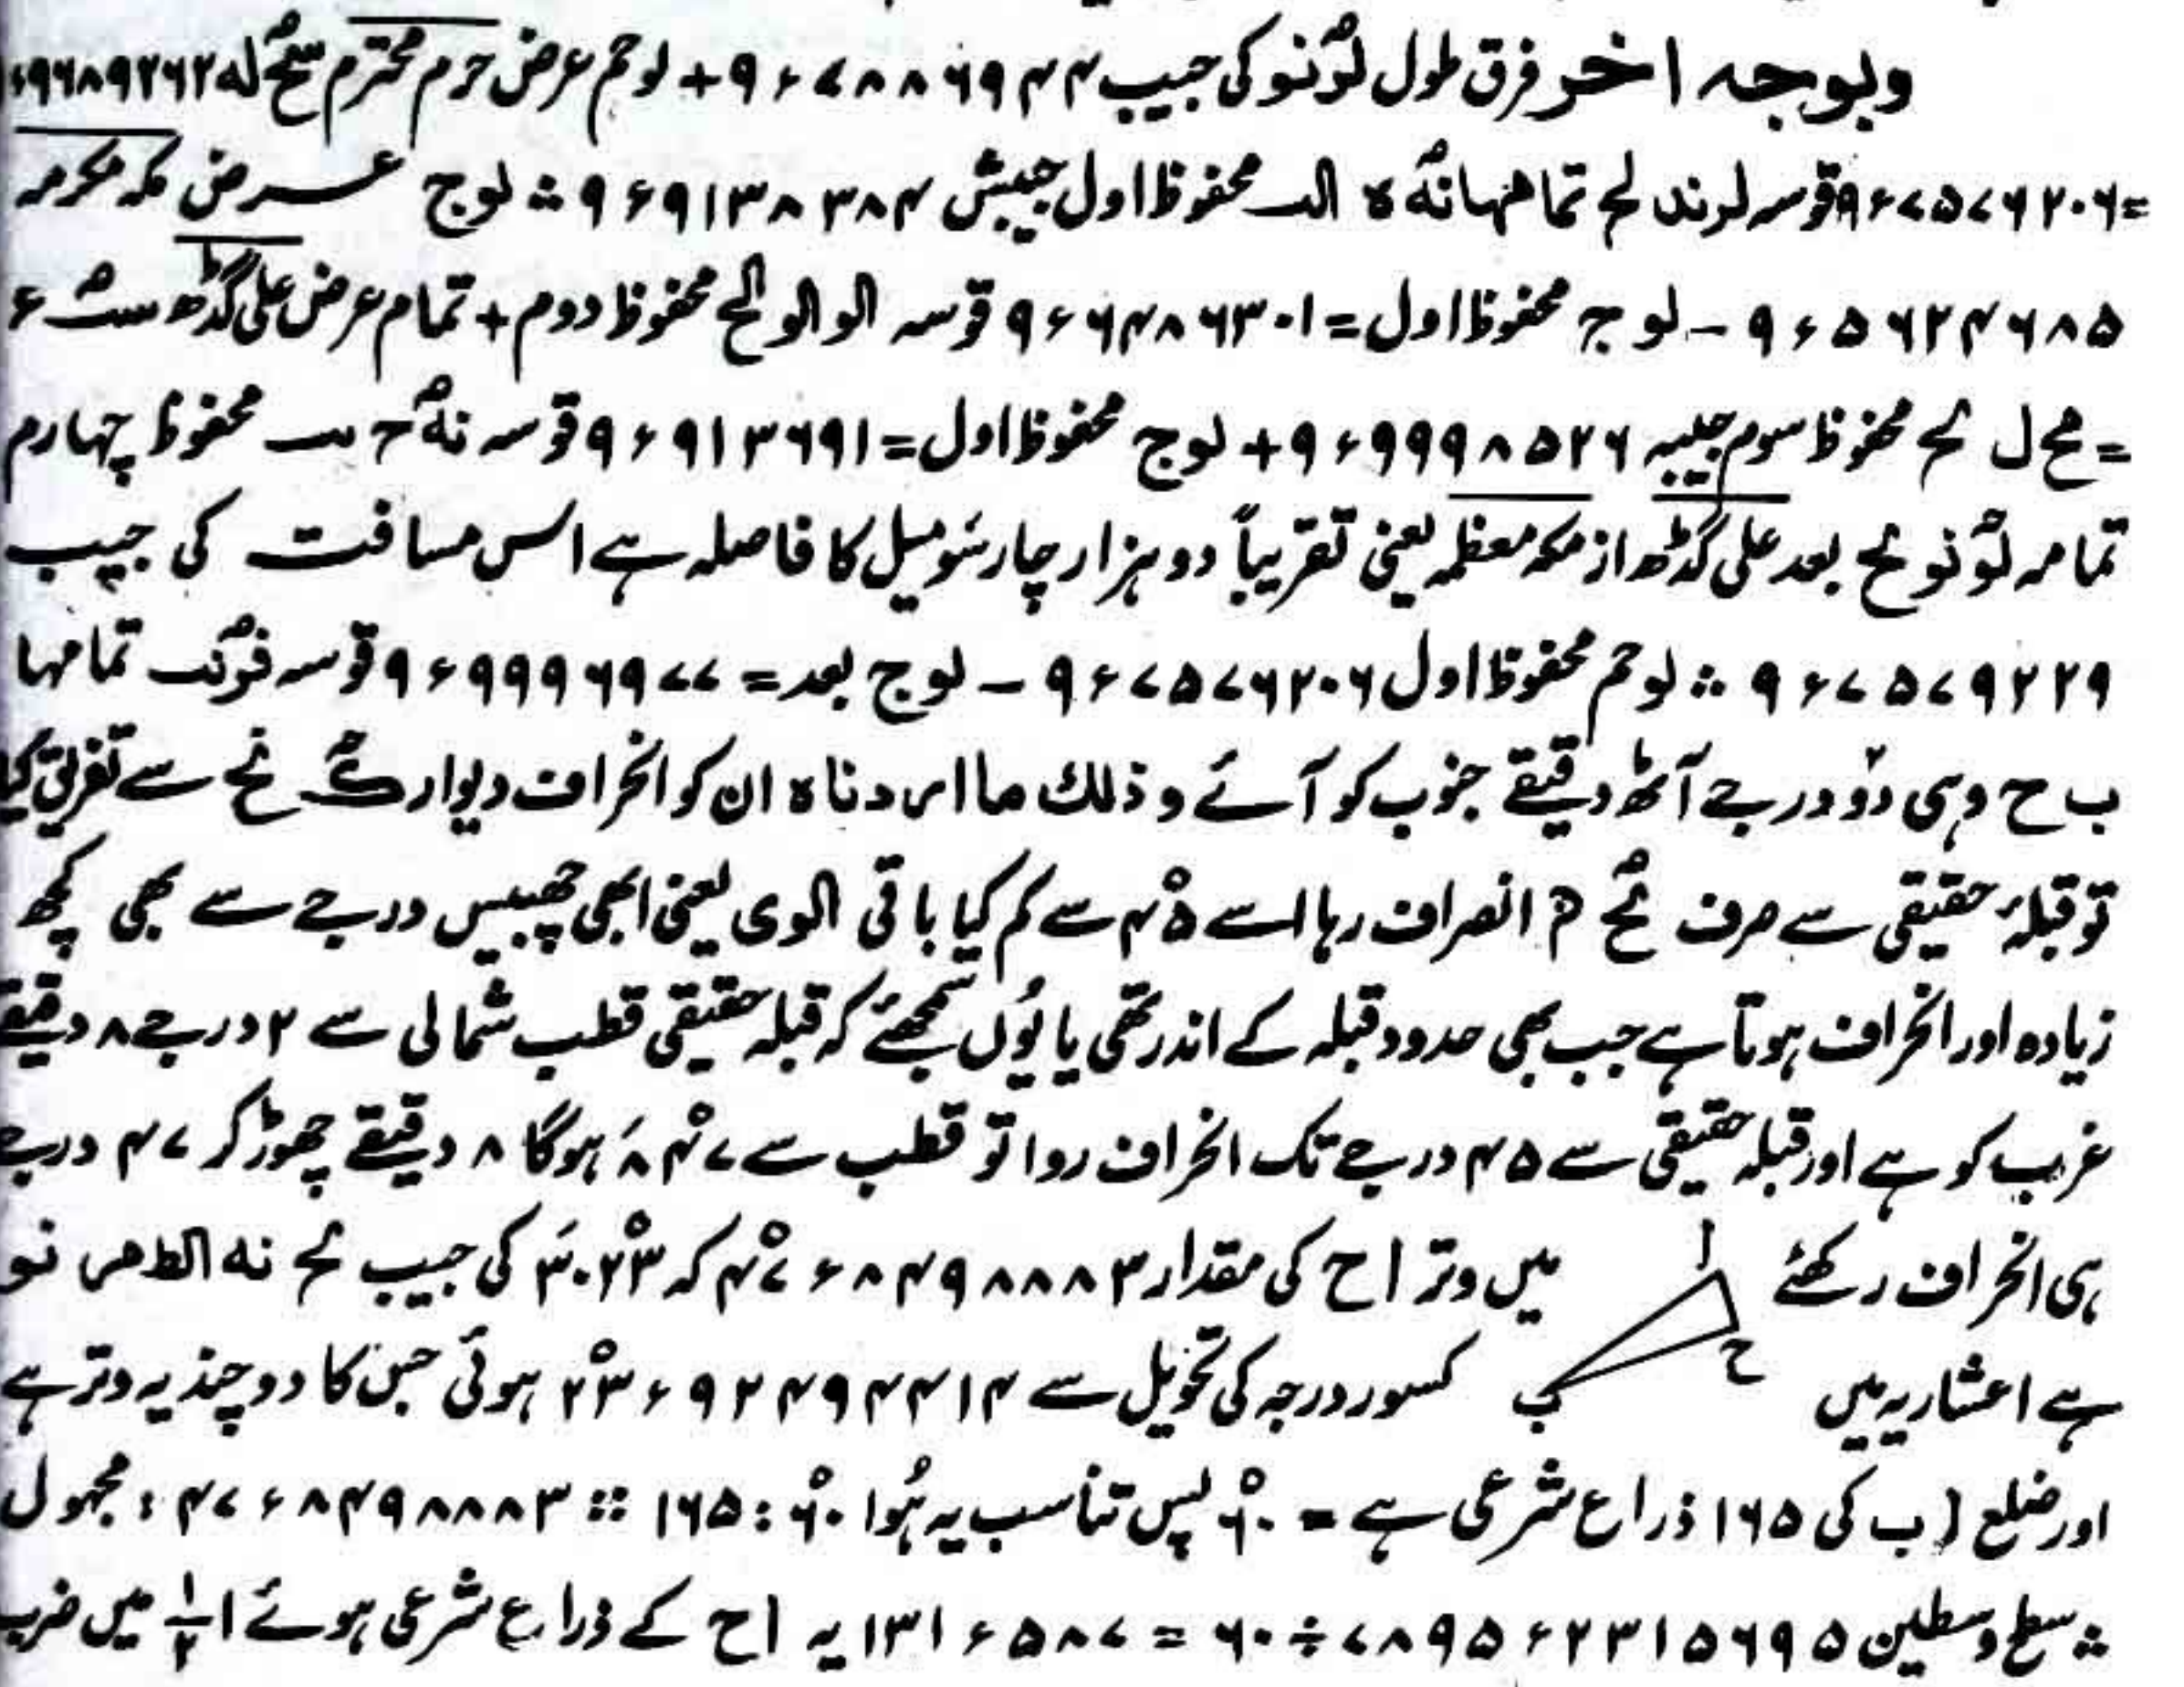 وبوجہ اخر فرق طول لوْنو کی جیب ۹ء۷۸۸۶۹۴۴ + لوجم عرض حرم محترم سحْ لہ ۹ء۹۶۸۹۲۶۲
= ۹ء۷۵۷۶۲۰۶ قوسہ لرند لح تمامہا نہْ ہ الہ محفوظ اول جیبش ۹ء۹۱۳۸۳۸۴ ∵ لوج عرض مکہ مکرمہ
۹ء۵۶۲۴۶۸۵ - لوج محفوظ اول = ۹ء۶۴۸۶۳۰۱ قوسہ الو الو لح محفوظ دوم + تمام عرض علی گڈھ سـْ ء
= مح ل لح محفوظ سوم جیبہ ۹ء۹۹۹۸۵۲۶ + لوج محفوظ اول = ۹ء۹۱۳۶۹۱ قوسہ نہْ ح محفوظ چہارم
تمامہ لوْ نو لح بعد علی گڈھ از مکہ معظمہ یعنی تقریباً دو ہزار چار سَو میل کا فاصلہ ہے اس مسافت کی جیب
۹ء۷۵۷۹۲۲۹ ∵ لوجم محفوظ اول ۹ء۷۵۷۶۲۰۶ - لوج بعد = ۹ء۹۹۹۶۹۷۷ قوسہ فرْنب تمامہا
ب ح وہی دو درجے آٹھ دقیقے جنوب کو آئے و ذلك ما اردناہ ان کو انحراف دیوار لح سے تفریق کیا
تو قبلہ حقیقی سے صرف لحْ م انصراف رہا اسے ۴۵ْ سے کم کیا باقی الوی یعنی ابھی چھبیس درجے سے بھی کچھ
زیادہ اور انحراف ہوتا ہے جب بھی حدود قبلہ کے اندر تھی یا یُوں سمجھئے کہ قبلہ حقیقی قطب شمالی سے ۲ درجے ۸ دقیقے
غرب کو ہے اور قبلہ حقیقی سے ۴۵ درجے تک انحراف روا تو قطب سے ۴۷ْ ۸َ ہوگا ۸ دقیقے چھوڑ کر ۴۷ درجے
ہی انحراف رکھئے ا میں وتر ا ح کی مقدار ۴۷ْء۸۴۹۸۸۸۳ کہ ۲۳ْ ۳۰َ کی جیب لح نہ الط مر نو
ہے اعشاریہ میں ب ح کسور درجہ کی تحویل سے ۲۳ْء۹۲۴۹۴۴۱۴ ہوئی جس کا دو چند یہ وتر ہے
اور ضلع ا ب کی ۱۶۵ ذراع شرعی ہے = ۶۰ْ پس تناسب یہ ہُوا ۶۰ْ : ۱۶۵ :: ۴۷ء۸۴۹۸۸۸۳ : مجہول
∵ سطح وسطین ۷۸۹۵ء۲۳۱۵۶۹۵ ÷ ۶۰ = ۱۳۱ء۵۸۷ یہ ا ح کے ذراع شرعی ہوئے ۱ ۱/۲ میں ضرب